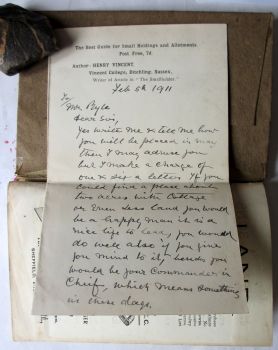 The Best Guide for Small Holdings and Allotments.
Post Free, 7d.
Author: HENRY VINCENT,
Vincent College, Ditchling, Sussex.
Writer of Article in "The Smallholder."
Feb 5th 1911
To
Mr. Pyle
Dear Sir,
Yes write me & tell me how
you will be placed in may
then I may advise you
but I make a charge of
one & six a letter. If you
could find a place about
two acres with Cottage
or Even less land you would
be a happy man it is a
nice life to lead, you would
do well also if you give
you mind to it, besides you
would be your Commander in
Chief, which means something
in these days.
SHEFFIELD
LANE